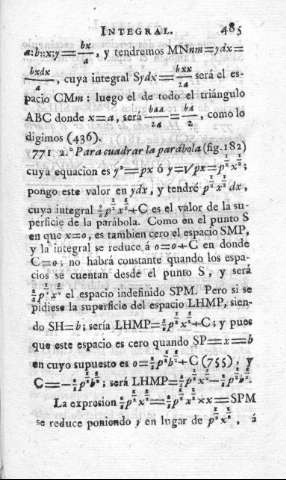 INTEGRAL. 485
a:b::x:y=bx/a, y tendremos MNnm=ydx=
bxdx/a, cuya integral Sydx=bxx/2a será el es-
pacio CMm: luego el de todo el triángulo
ABC donde x=a, será baa/2a=ba/2, como lo
digimos (436).
771 2.° Para cuadrar la parábola (fig. 182)
cuya equacion es y²=px ó y=√px=p^½x^½;
pongo este valor en ydx, y tendré p^½x^½dx,
cuya integral ⅔p^½x^{3/2}+C es el valor de la su-
perficie de la parábola. Como en el punto S
en que x=0, es tambien cero el espacio SMP,
y la integral se reduce á 0=0+C en donde
C=0; no habrá constante quando los espa-
cios se cuentan desde el punto S, y será
⅔p^½x^{3/2} el espacio indefinido SPM. Pero si se
pidiese la superficie del espacio LHMP, sien-
do SH=b; seria LHMP=⅔p^½x^{3/2}+C; y pues
que este espacio es cero quando SP=x=b
en cuyo supuesto es 0=⅔p^½b^{3/2}+C (755), y
C=-⅔p^½b^{3/2}; será LHMP=⅔p^½x^{3/2}-⅔p^½b^{3/2}.
La expresion ⅔p^½x^{3/2}=⅔p^½x^½×x=SPM
se reduce poniendo y en lugar de p^½x^½, á